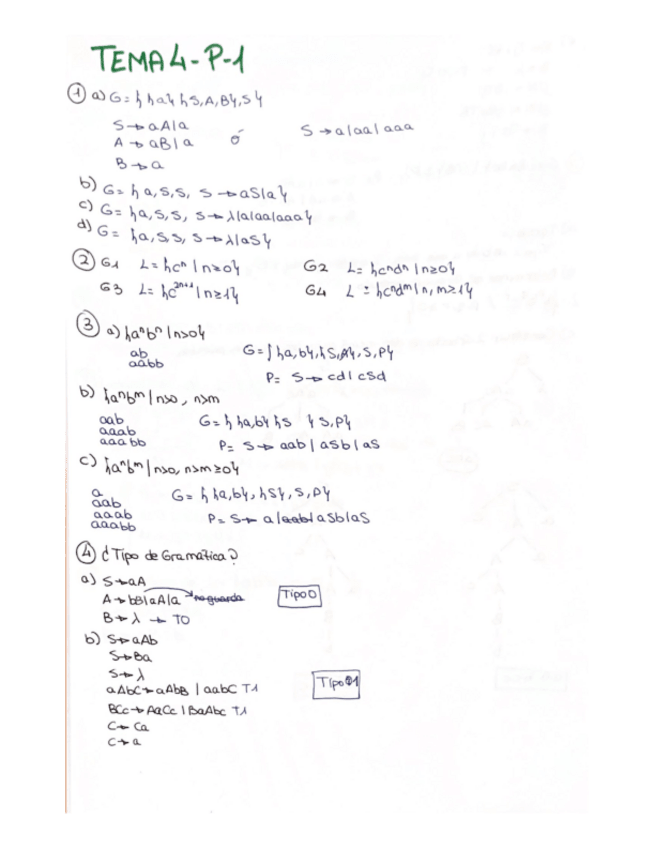 TEMA 4 - P - 1
① a) G = { {a} {S, A, B}, S }
S → aA | a
A → aB | a ó S → a | aa | aaa
B → a
b) G = {a, S, S, S → aS | a}
c) G = {a, S, S, S → λ | a | aa | aaa}
d) G = {a, S, S, S → λ | aS}
② G1 L = {cⁿ | n ≥ 0} G2 L = {cⁿdⁿ | n ≥ 0}
G3 L = {c²ⁿ⁺¹ | n ≥ 1} G4 L = {cⁿdᵐ | n, m ≥ 1}
③ a) {aⁿbⁿ | n > 0}
ab G = { {a, b}, {S, A}, S, P}
aabb
P = S → cd | cSd
b) {aⁿbᵐ | n > 0, n > m
aab G = { {a, b} {S } S, P}
aaab
aaabb P = S → aab | aSb | aS
c) {aⁿbᵐ | n > 0, n > m ≥ 0}
a G = { {a, b}, {S}, S, P}
aab
aaab P = S → a | aab | aSb | aS
aaabb
④ ¿Tipo de Gramática?
a) S → aA
A → bB | aA | a no guarda Tipo 0
B → λ → T0
b) S → aAb
S → Ba
S → λ
aAbC → aAbB | aabC T1 Tipo 1
BCc → AaCc | BaAbc T1
C → Ca
C → a